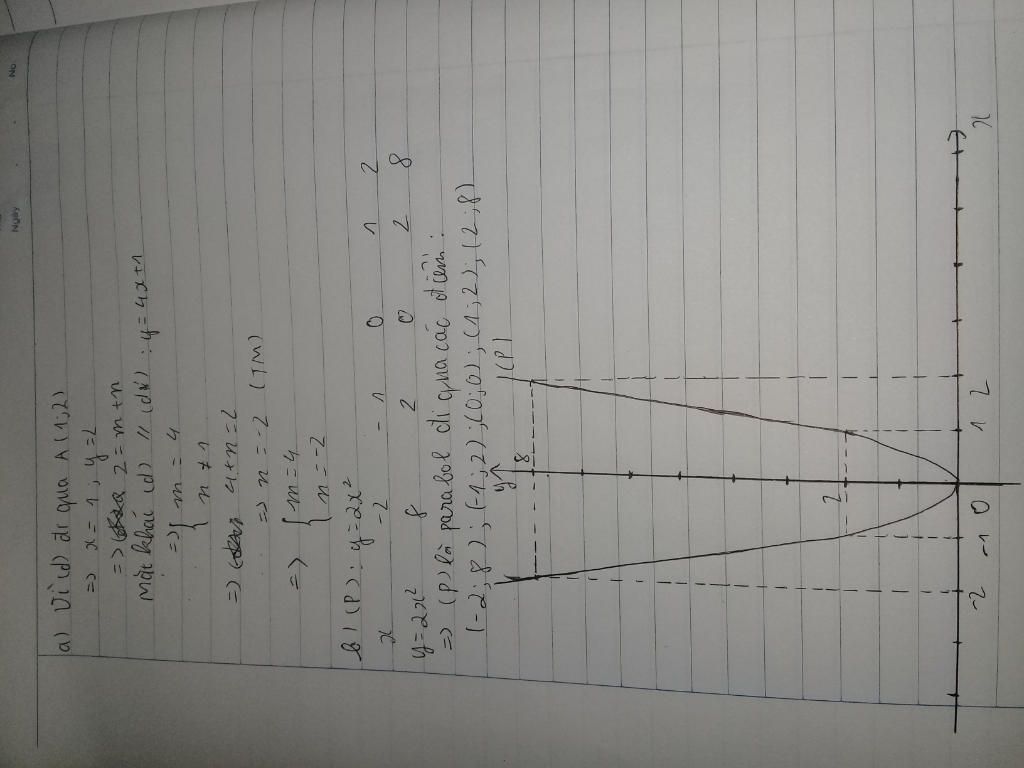 No.
Ngày
a) Vì (d) đi qua A (1;2)
=> x = 1; y = 2
=> 2 = m + n
Mặt khác (d) // (d') : y = 4x + 1
=> { m = 4
n ≠ 1
=> 4 + n = 2
=> n = -2 (TM)
=> { m = 4
n = -2
b) (P) : y = 2x²
x -2 -1 0 1 2
y = 2x² 8 2 0 2 8
=> (P) là parabol đi qua các điểm:
(-2; 8); (-1; 2); (0; 0); (1; 2); (2; 8)
y (P)
8
2
-2 -1 0 1 2 x